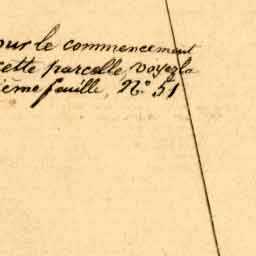 our le commencement
cette parcelle, voyez la
ième feuille, N.º 51